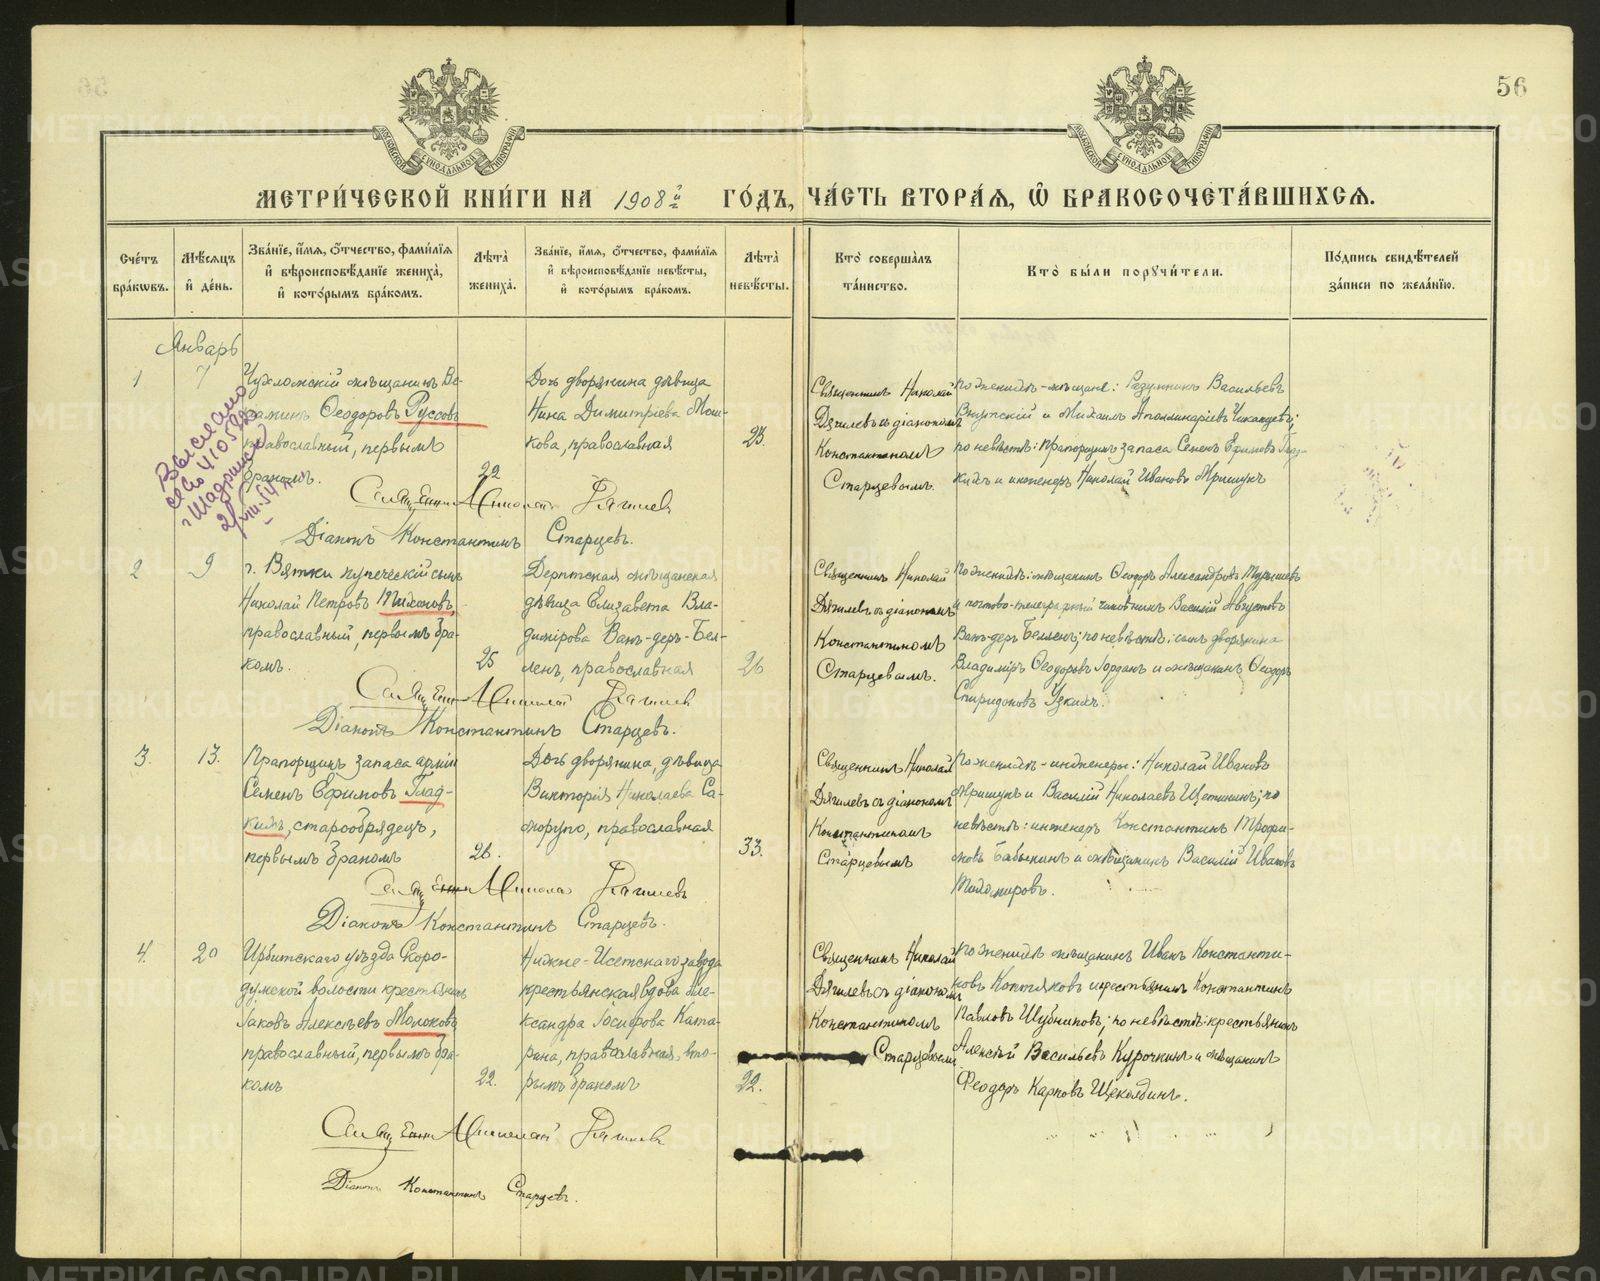 56
МЕТРИ́ЧЕСКОЙ КНИ́ГИ НА 1908й ГО́ДЪ, ЧА́СТЬ ВТОРА́Я, Ѡ БРАКОСОЧЕТА́ВШИХСЯ.
Сче́тъ бра́кѡвъ.
Мѣ́сяцъ и҆ де́нь.
Зва́нїе, и҆́мя, ѻ҆́тчество, фами́лїя и҆ вѣроисповѣ́данїе жениха̀, и҆ кото́рымъ бра́комъ.
Лѣ́та̀ жениха̀.
Зва́нїе, и҆́мя, ѻ҆́тчество, фами́лїя и҆ вѣроисповѣ́данїе невѣ́сты, и҆ кото́рымъ бра́комъ.
Лѣ́та̀ невѣ́сты.
Кто̀ соверша́лъ та́инство.
Кто̀ бы́ли порꙋчи́тели.
По́дпись свидѣ́телей за́писи по жела́нїю.
Январь
1
7
Чухломскій мѣщанинъ Ве-
Ѳеодоровъ Руссовъ
православный, первымъ
бракомъ.
22
Дочь дворянина дѣвица
Нина Димитріева Мош-
кова, православная
23.
Священникъ Николай
Дягилевъ съ діакономъ
Константиномъ
Старцевымъ.
По женихѣ - мѣщане: Васильевъ
Внутскій и Михаилъ Аполлинаріевъ
по невѣстѣ: прапорщикъ запаса Семенъ Ефимовъ Глад-
кихъ и инженеръ Николай Ивановъ Мришукъ
Выслано
св-во 410523
г. Шадринск
2/VIII-54 г.
Священникъ Николай Дягилев
Діаконъ Константинъ Старцевъ.
2
9
г. Вятки купеческій сынъ
Николай Петровъ Тихоновъ,
православный, первымъ бра-
комъ.
25
Дерптская мѣщанская
дѣвица Елизавета Вла-
димірова Ванъ-деръ-Бел-
ленъ, православная
26
Священникъ Николай
Дягилевъ съ діакономъ
Константиномъ
Старцевымъ.
По женихѣ: мѣщанинъ Ѳеодоръ Александровъ
и почтово-телеграфный чиновникъ Василій Августовъ
Ванъ-деръ Белленъ; по невѣстѣ: сынъ дворянина
Владиміръ Ѳеодоровъ Іорданъ и мѣщанинъ Ѳеодоръ
Спиридоновъ Узкихъ.
Священникъ Николай Дягилев
Діаконъ Константинъ Старцевъ.
3.
13.
Прапорщикъ запаса арміи
Семенъ Ефимовъ Глад-
кихъ, старообрядецъ,
первымъ бракомъ
26.
Дочь дворянина, дѣвица
Викторія Николаева Са-
мохупо, православная
33.
Священникъ Николай
Дягилевъ съ діакономъ
Константиномъ
Старцевымъ
По женихѣ - инженеры: Николай Ивановъ
Мришукъ и Василій Николаевъ Щетининъ; по
невѣстѣ: инженеръ Константинъ Трофи-
мовъ Бабыкинъ и мѣщанинъ Василій Ивановъ
Тихомировъ.
Священникъ Николай Дягилевъ
Діаконъ Константинъ Старцевъ.
4.
20
Ирбитскаго уѣзда Скоро-
думской волости крестьянинъ
Іаковъ Алексѣевъ Молоковъ
православный, первымъ бра-
комъ
22.
Нижне-Исетскаго завода
крестьянская вдова Але-
ксандра Іосифова Ката-
рина, православная, вто-
рымъ бракомъ
22.
Священникъ Николай
Дягилевъ съ діакономъ
Константиномъ
Старцевымъ
По женихѣ мѣщанинъ Иванъ Константи-
новъ Коптяковъ и крестьянинъ Константинъ
Павловъ Шубниковъ; по невѣстѣ: крестьянинъ
Алексѣй Васильевъ Курочкинъ и мѣщанинъ
Ѳеодоръ Карповъ Щеколдинъ.
Священникъ Николай Дягилев
Діаконъ Константинъ Старцевъ.